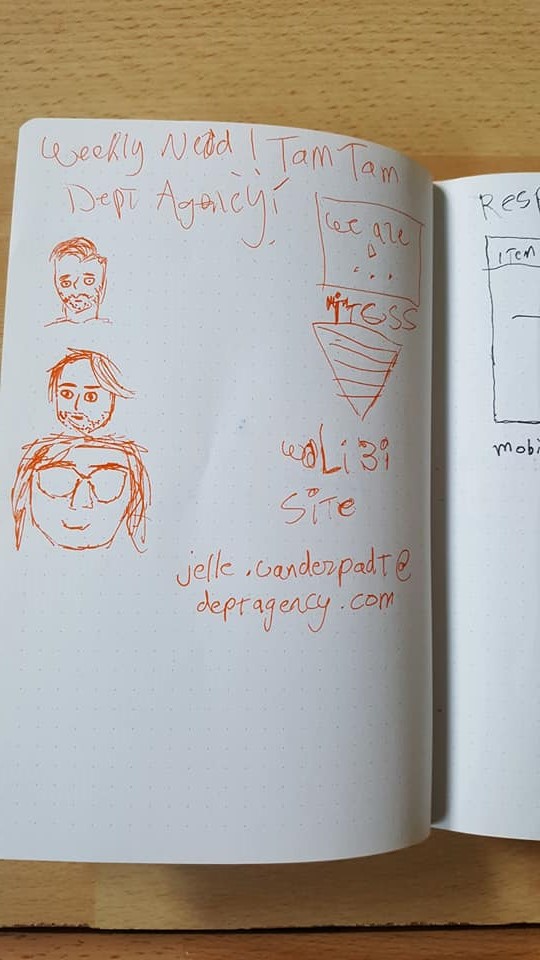 Weekly Nerd! Tam Tam
Dept Agency
we are
ITCSS
waLi3i
SiTe
jelle.vanderpadT@
deptagency.com
Resp
iTem
mobi